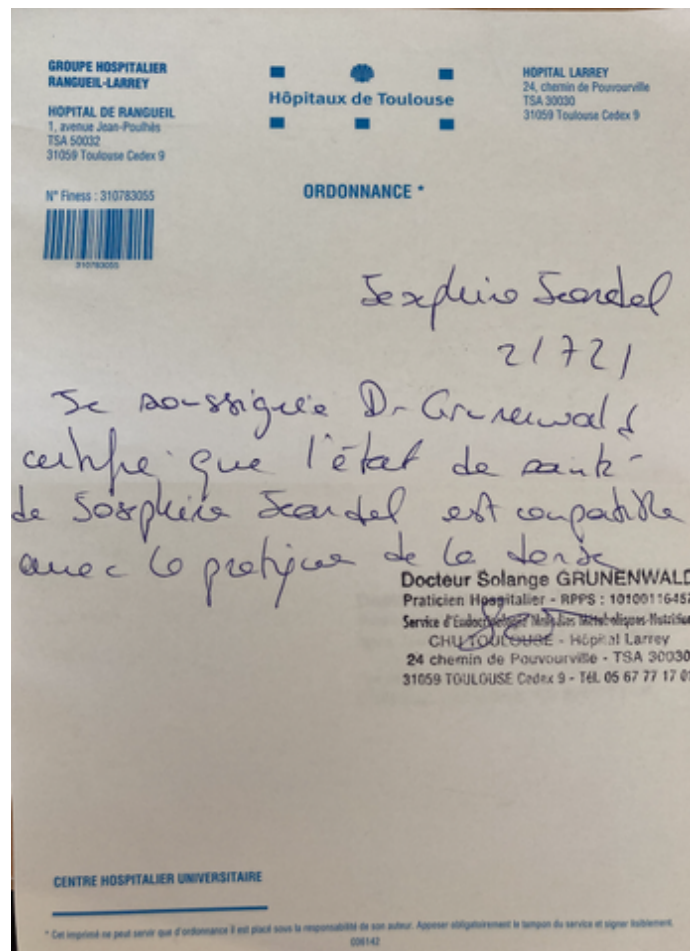 GROUPE HOSPITALIER
RANGUEIL-LARREY
HÔPITAL DE RANGUEIL
1, avenue Jean-Poulhès
TSA 50032
31059 Toulouse Cedex 9
Hôpitaux de Toulouse
HÔPITAL LARREY
24, chemin de Pouvourville
TSA 30030
31059 Toulouse Cedex 9
N° Finess : 310783055
310783055
ORDONNANCE *
21721
Je soussignée Dr Grunenwald
certifie que l'état de santé
de est compatible
avec la pratique de la danse
Docteur Solange GRUNENWALD
Praticien Hospitalier - RPPS : 1010011645
Service d'Endocrinologie Maladies Métaboliques Nutrition
CHU TOULOUSE - Hôpital Larrey
24 chemin de Pouvourville - TSA 30030
31059 TOULOUSE Cedex 9 - Tél. 05 67 77 17 0
CENTRE HOSPITALIER UNIVERSITAIRE
* Cet imprimé ne peut servir que d'ordonnance il est placé sous la responsabilité de son auteur. Apposer obligatoirement le tampon du service et signer lisiblement.
006142